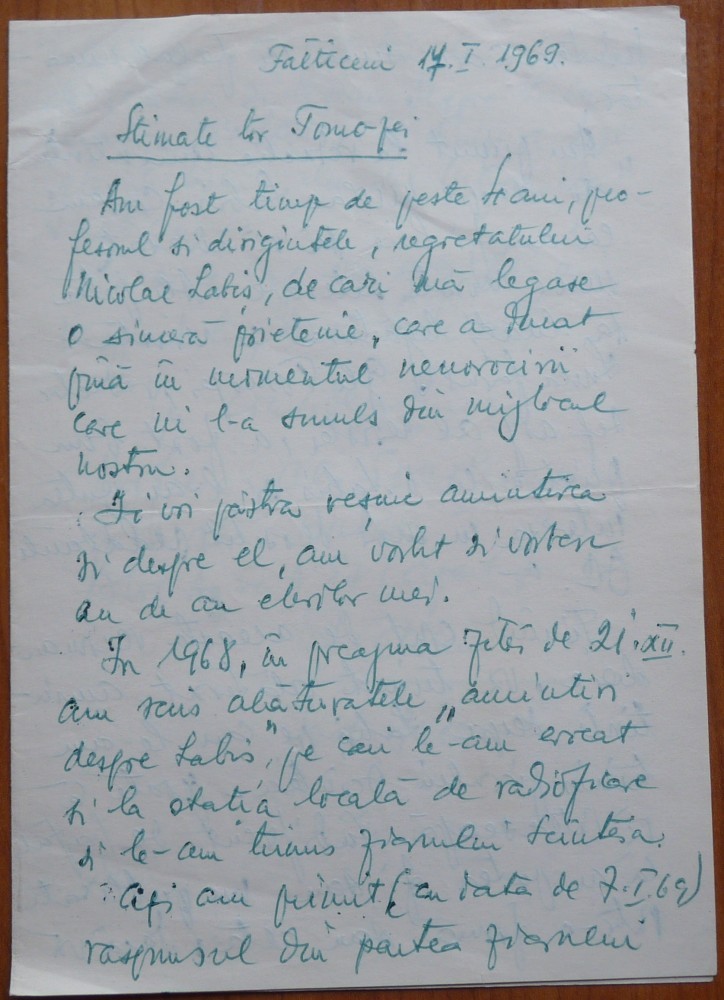 Fălticeni 17.I.1969.
Stimate tov Tomozei
Am fost timp de peste 4 ani, pro-
fesorul si dirigintele, regretatului
Nicolae Labiș, de cari mă legase
o sinceră prietenie, care a durat
pînă în momentul nenorocirii
care ni l-a smuls din mijlocul
nostru.
Ii voi păstra veșnic amintirea
si despre el, am vorbit si vorbesc
an de an elevilor mei.
In 1968, în preajma zilei de 21.XII.
am scris alăturatele „amintiri
despre Labiș", pe cari le-am evocat
si la stația locală de radioficare
si le-am trimis ziarului Scînteia.
Azi am primit (cu data de 7.I.69)
raspunsul din partea ziarului